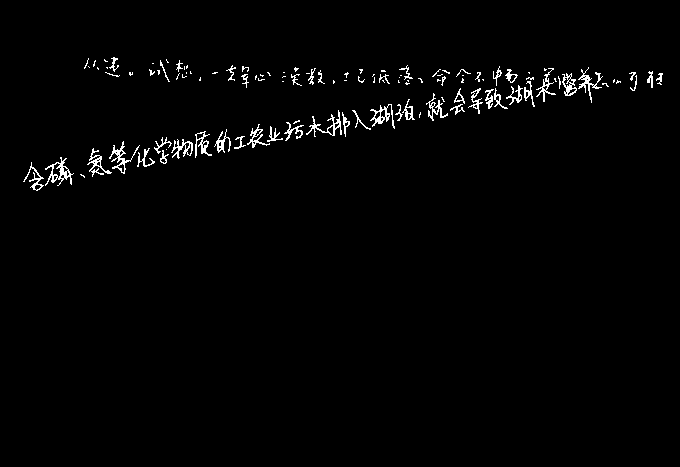 从速。试想,一支军心涣散,士气低落、命令不畅
含磷、氮等化学物质的工农业污水排入湖泊,就会导致湖泊富营养